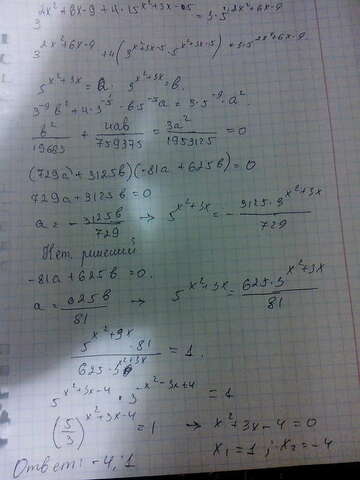 3^{2x²+6x-9} + 4·15^{x²+3x-5} = 3·5^{2x²+6x-9}
3^{2x²+6x-9} + 4(3^{x²+3x-5}·5^{x²+3x-5}) = 3·5^{2x²+6x-9}
5^{x²+3x} = a. 3^{x²+3x} = b.
3^{-9}b² + 4·3^{-5}·b·5^{-5}a = 3·5^{-9}·a².
b²/19683 + 4ab/759375 = 3a²/1953125 = 0
(729a + 3125b)(-81a + 625b) = 0
729a + 3125b = 0
a = -3125b/729 → 5^{x²+3x} = -3125·3^{x²+3x}/729
Нет решений
-81a + 625b = 0.
a = 625b/81 → 5^{x²+3x} = 625·3^{x²+3x}/81
5^{x²+3x}·81/625·3^{x²+3x} = 1.
5^{x²+3x-4}·3^{-x²-3x+4} = 1
(5/3)^{x²+3x-4} = 1 → x²+3x-4=0
x₁=1; x₂=-4
Ответ: -4; 1